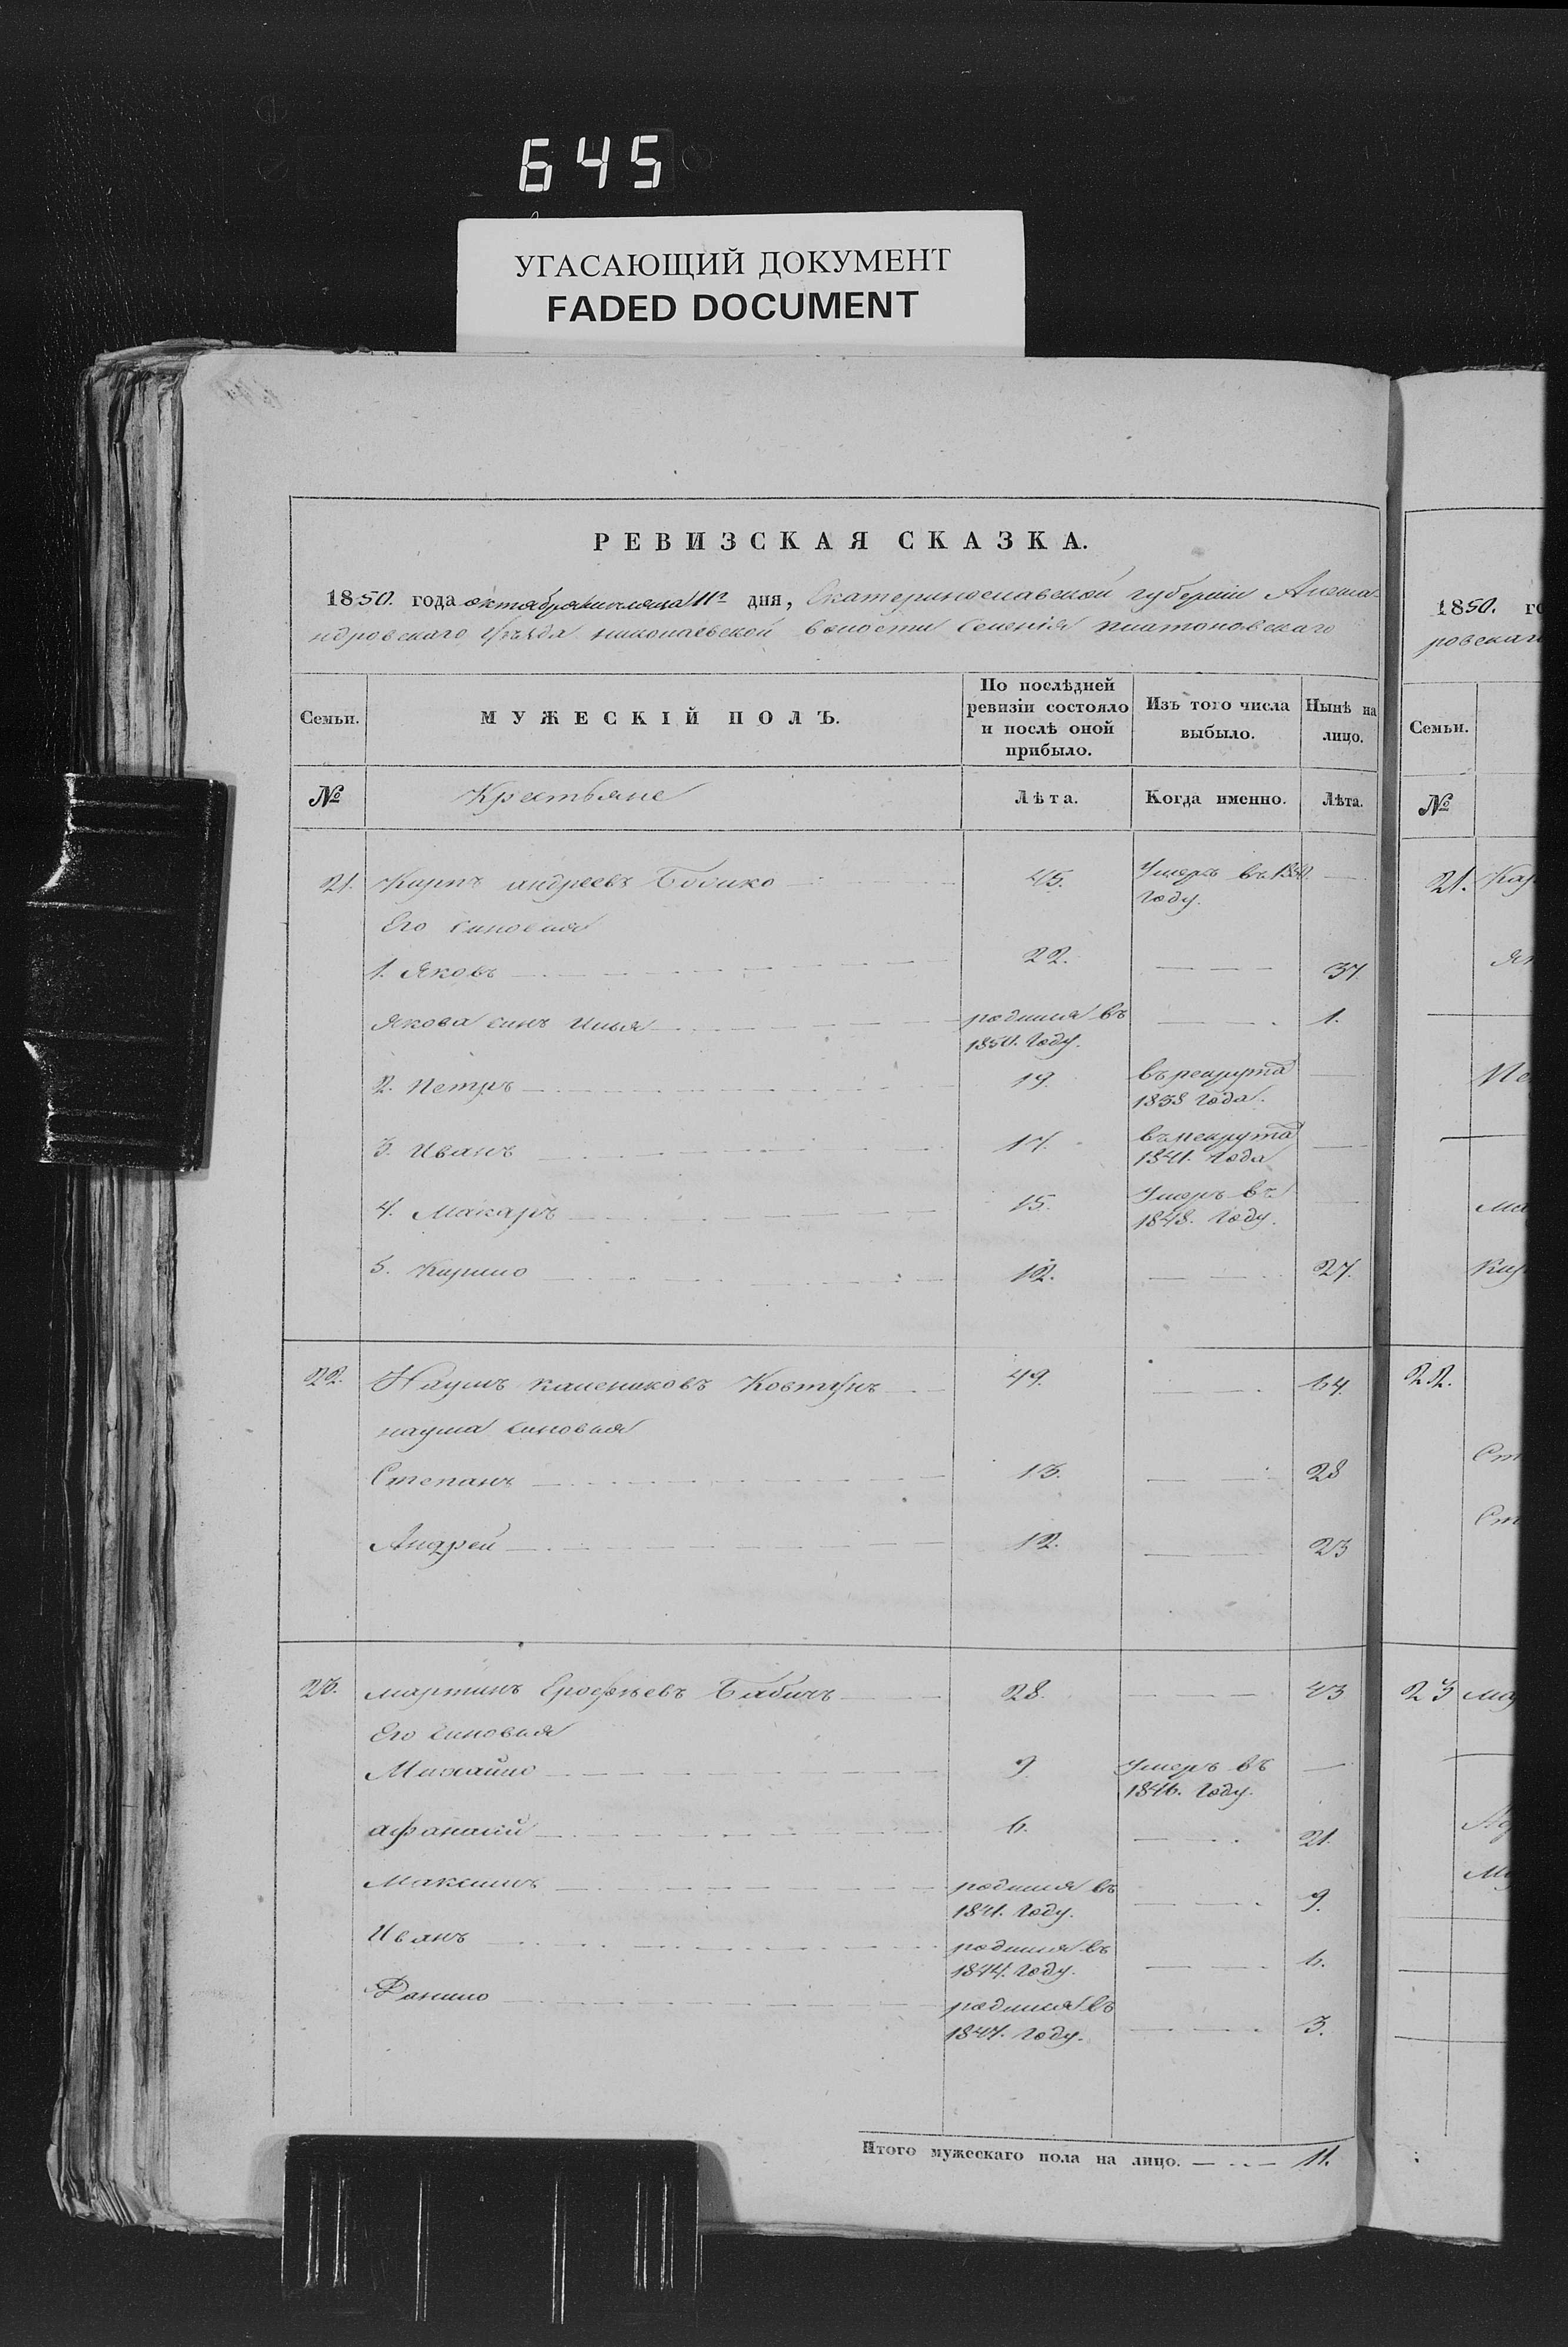 645
УГАСАЮЩИЙ ДОКУМЕНТ
FADED DOCUMENT
РЕВИЗСКАЯ СКАЗКА.
1850. года октября месяца 11го дня, Екатеринославской губернии Алекса-
ндровскаго Уѣзда николаевской волости Селенія платоновскаго
Семьи.
МУЖЕСКІЙ ПОЛЪ.
По послѣдней ревизіи состояло и послѣ оной прибыло.
Изъ того числа выбыло.
Нынѣ на лицо.
№ Крестьяне Лѣта. Когда именно. Лѣта.
21. Карпъ андреевъ 45. Умеръ въ
году.
Его синовья
1. Яковъ 22. 37
Якова синъ Илья родился въ 1.
1850. Году.
2. Петръ 19. въ рекрута
1838 года.
3. Иванъ 17. въ рекрута
1841. года
4. Макаръ 15. Умеръ въ
1848. Году.
5. Кирило 12. 27.
22. Наумъ калениковъ Ковтунъ 49. 64.
наума синовья
Степанъ 13. 28
Андрей 12. 23
23. мартинъ Ерофѣевъ Бабичъ 28. 43
Его синовья
Михайло 9. Умеръ въ
1846. Году.
афанасий 6. 21.
Максимъ родился въ 9.
1841. Году.
Иванъ родился въ 6.
1844. Году.
Данило родился въ
1847. Году. 3.
Итого мужескаго пола на лицо. 11.
1850. го
ровскаго
Семьи.
№
21. Кар
Як
Пе
ма
Кир
22.
Ст
23 ма